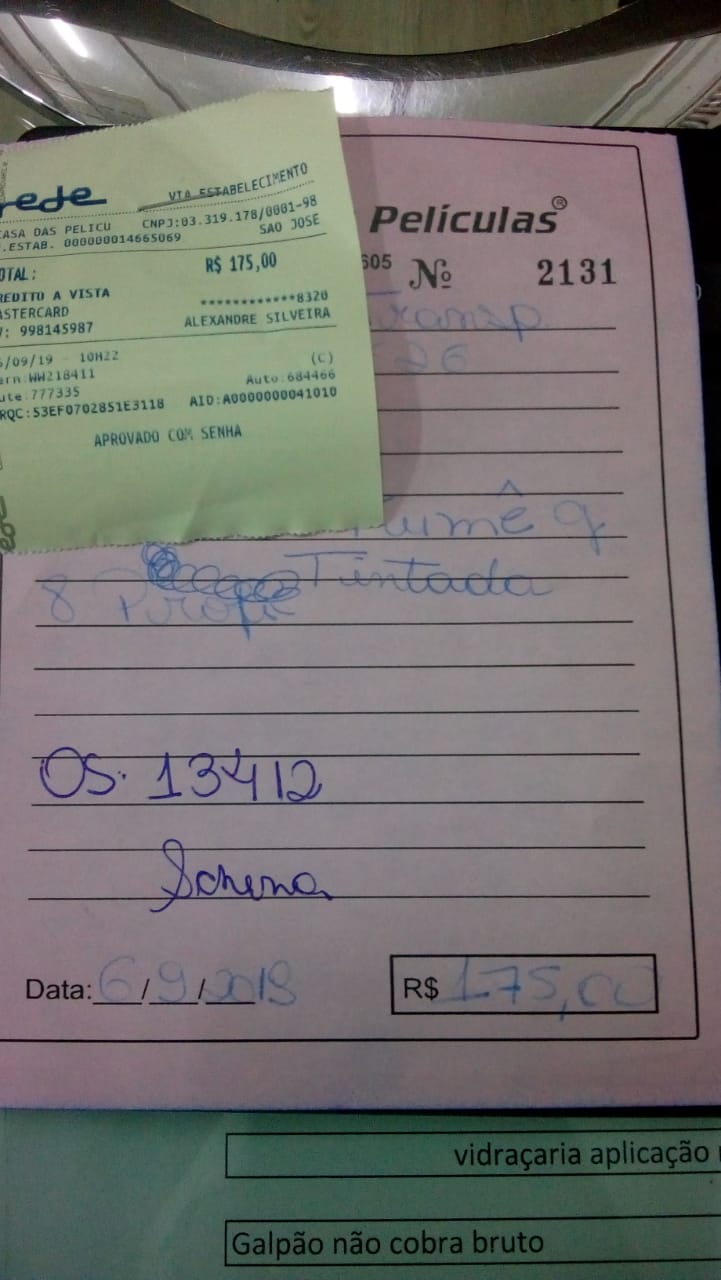 rede
VIA ESTABELECIMENTO
CASA DAS PELICU CNPJ:03.319.178/0001-98
.ESTAB. 000000014665069 SAO JOSE
OTAL: R$ 175,00
REDITO A VISTA ************8320
ASTERCARD ALEXANDRE SILVEIRA
: 998145987
6/09/19 - 10H22 (C)
ern:WW218411 Auto:684466
ute:777335
RQC:53EF0702851E3118 AID:A0000000041010
APROVADO COM SENHA
Películas®
605 Nº 2131
Transp
26
fumê 9
Tintada
8
OS. 13412
Schena
Data: 6/9/2019 R$ 175,00
vidraçaria aplicação
Galpão não cobra bruto